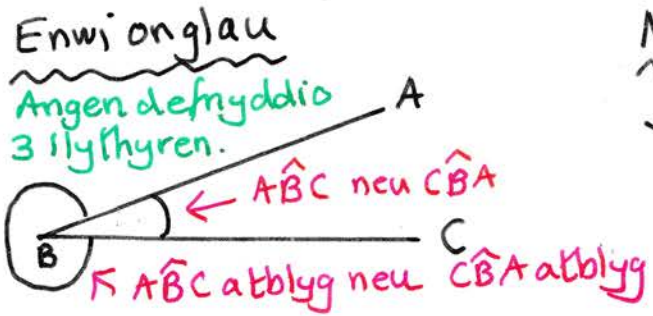 Enwi onglau
Angen defnyddio
3 llythyren.
A
AB̂C neu CB̂A
B
C
AB̂C atblyg neu CB̂A atblyg